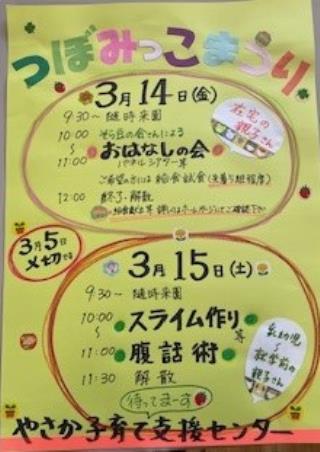 つぼみっこまつり
3月14日(金)
在宅の
親子さん
9:30～ 随時来園
10:00 そら豆の会さんによる
～ おはなしの会
11:00 パネルシアター等
ご希望の方には給食試食(先着5組程度)
12:00 終了・解散
詳しくはホームページにてご確認下さい
3月5日
〆切です
3月15日(土)
9:30～ 随時来園
10:00 スライム作り等
～
11:00 腹話術
11:30 解散
乳幼児
～
就学前の
親子さん
待ってまーす
やさか子育て支援センター